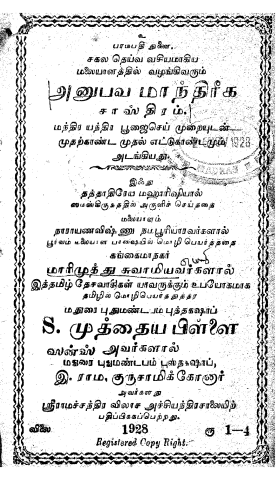 உ
பராபதி துணை.
சகல தெய்வ வசியமாகிய
மலையாளத்தில் வழங்கிவரும்
அனுபவ மாந்திரீக
சாஸ்திரம்.
மந்திர யந்திர பூஜைசெய் முறையுடன்
முதற்காண்ட முதல் எட்டுகாண்டமும்
அடங்கியது.
1928
இஃது
தத்தாதிரேய மஹாரிஷியால்
அருளிச் செய்ததை
மலையாளம்
நாராயணவிஷ்ணு நம்பூரியாரவர்களால்
பூர்வம் மலையாள பாஷையில் மொழி பெயர்த்ததை
கங்கைமாநகர்
மாரிமுத்து சுவாமியவர்களால்
இத்தமிழ் தேசவாசிகள் யாவருக்கும் உபயோகமாக
தமிழில் மொழிபெயர்த்ததை
மதுரைப் புதுமண்டபம் புத்தகஷாப்
S. முத்தைய பிள்ளை
ஸன்ஸ் அவர்களால்
மதுரை புதுமண்டபம் புஸ்தகஷாப்,
இ. ராம. குருசாமிக்கோனார்
அவர்களது
ஸ்ரீராமச்சந்திர விலாச அச்சியந்திரசாலையிற்
பதிப்பிக்கப்பெற்றது.
விலை 1928 ரூ 1—4
Registered Copy Right.